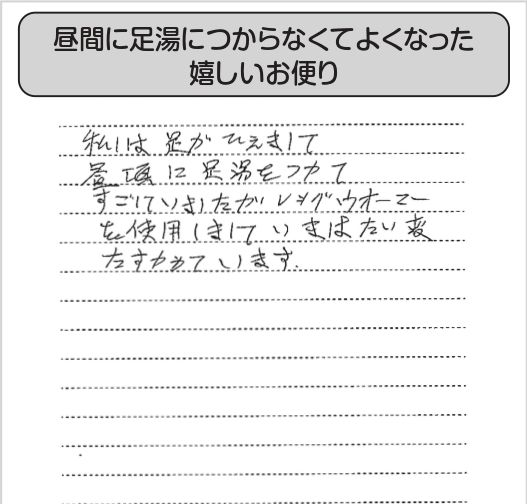 昼間に足湯につからなくてよくなった
嬉しいお便り
私は足がひえまして
昼頃に足湯をつかて
すごしていましたがレッグウオーマー
を使用しましていまはたい変
たすかつています.